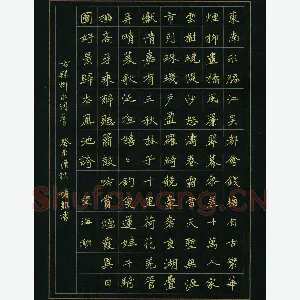 東南形勝江吳都會錢塘自古繁華
煙柳畫橋風簾翠幕參差十萬人家
雲樹繞堤沙怒濤卷霜雪天塹無涯
市列珠璣戶盈羅綺競豪奢重湖疊
巘清嘉有三秋桂子十里荷花羌管
弄晴菱歌泛夜嬉嬉釣叟蓮娃千騎
擁高牙乘醉聽簫鼓吟賞煙霞異日
圖將好景歸去鳳池誇 望海潮
柳永詞
Shufawang.CN